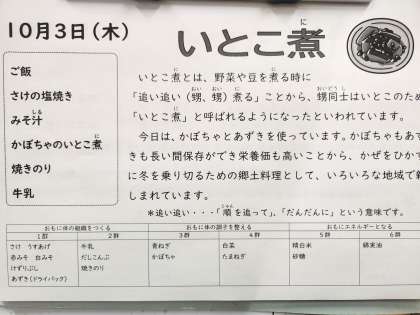 10月3日(木)
いとこ煮
ご飯
さけの塩焼き
みそ汁
かぼちゃのいとこ煮
焼きのり
牛乳
いとこ煮とは、野菜や豆を煮る時に
「追い追い(甥、甥)煮る」ことから、甥同士はいとこのため
「いとこ煮」と呼ばれるようになったといわれています。
今日は、かぼちゃとあずきを使っています。かぼちゃもあず
きも長い間保存ができ栄養価も高いことから、かぜをひかず
に冬を乗り切るための郷土料理として、いろいろな地域で親
しまれています。
*追い追い・・・「順を追って」、「だんだんに」という意味です。
おもに体の組織をつくる おもに体の調子を整える おもにエネルギーとなる
1群 2群 3群 4群 5群 6群
さけ うすあげ 牛乳 青ねぎ 白菜 精白米 綿実油
赤みそ 白みそ だしこんぶ かぼちゃ たまねぎ 砂糖
けずりぶし 焼きのり
あずき(ドライパック)